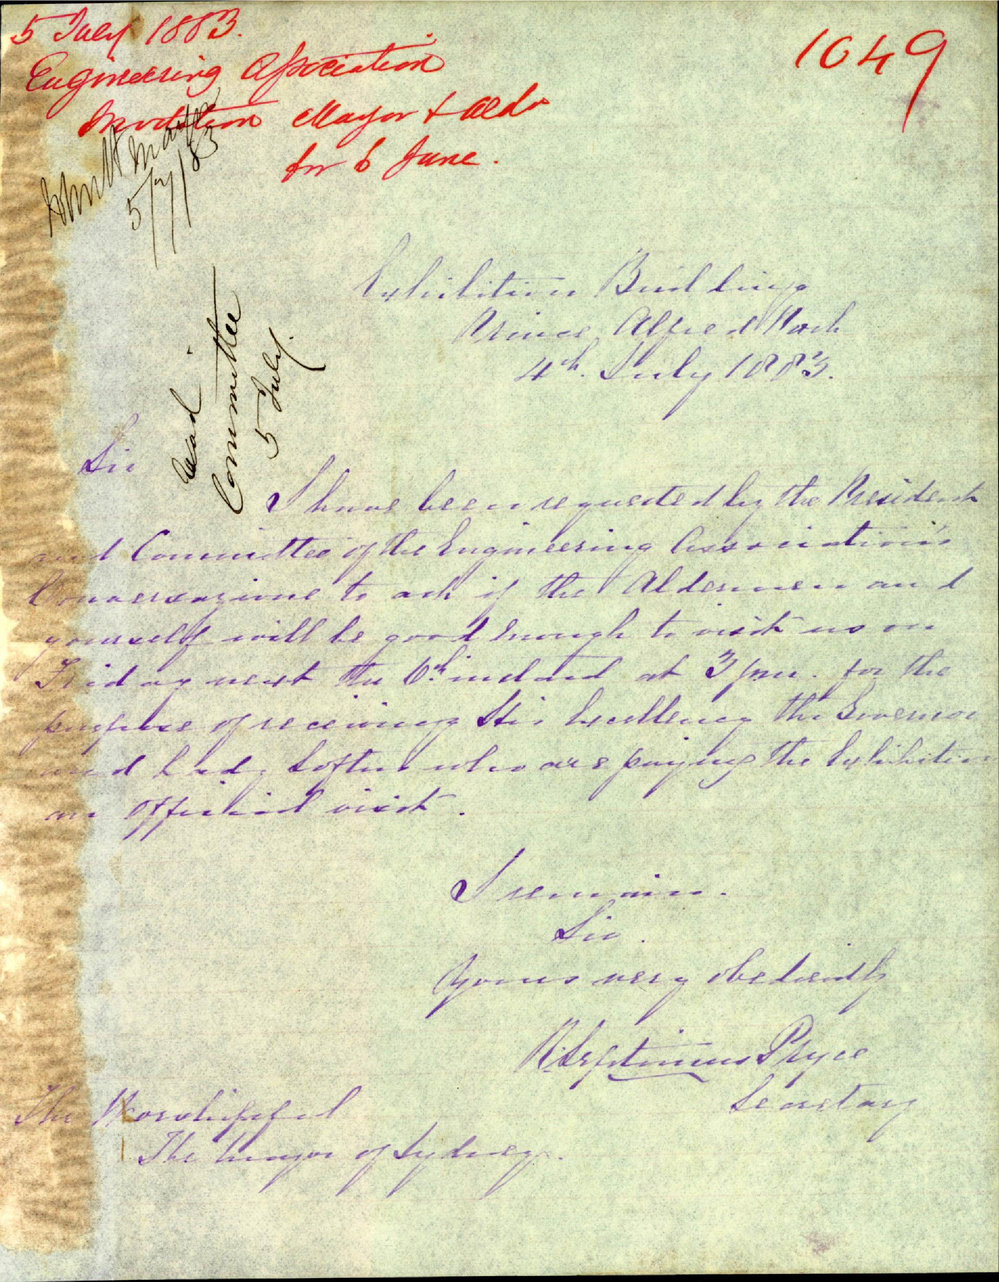 5 July 1883.
Engineering Association
Invitation Mayor & Aldn
for 6 June.
1049
5/7/83
Read
Committee
5 July.
Exhibition Building
Prince Alfred Park
4th. July 1883.
Sir
I have been requested by the President
and Committee of the Engineering Association's
Conversazione to ask if the Aldermen and
yourself will be good enough to visit us on
Friday next the 6th. instant at 3 pm. for the
purpose of receiving His Excellency the Governor
and Lady Loftus who are paying the Exhibition
an official visit.
I remain.
Sir.
Yours very obediently
R Septimus Pryce
Secretary
The Worshipful
The Mayor of Sydney.